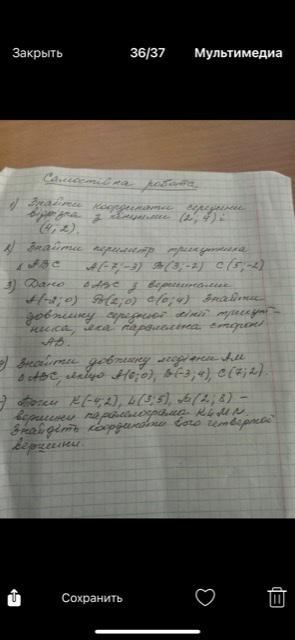 Закрыть
36/37
Мультимедиа
Самостійна робота
1) Знайти координати середини
відрізка з кінцями (2; 4) і
(4; 2).
2) Знайти периметр трикутника
ABC A(-7;-3) B(3;-2) C(5;-2)
3) Дано △ABC з вершинами
A(-2;0) B(2;0) C(0;4) Знайти
довжину середньої лінії трикут-
ника, яка паралельна стороні
AB.
Знайти довжину медіани AM
△ABC, якщо A(0;0), B(-3;4), C(7;2).
K(-4,2), L(3;5), M(2;3) –
вершини паралелограма KLMN.
Знайдіть координати його четвертої
вершини.
Сохранить